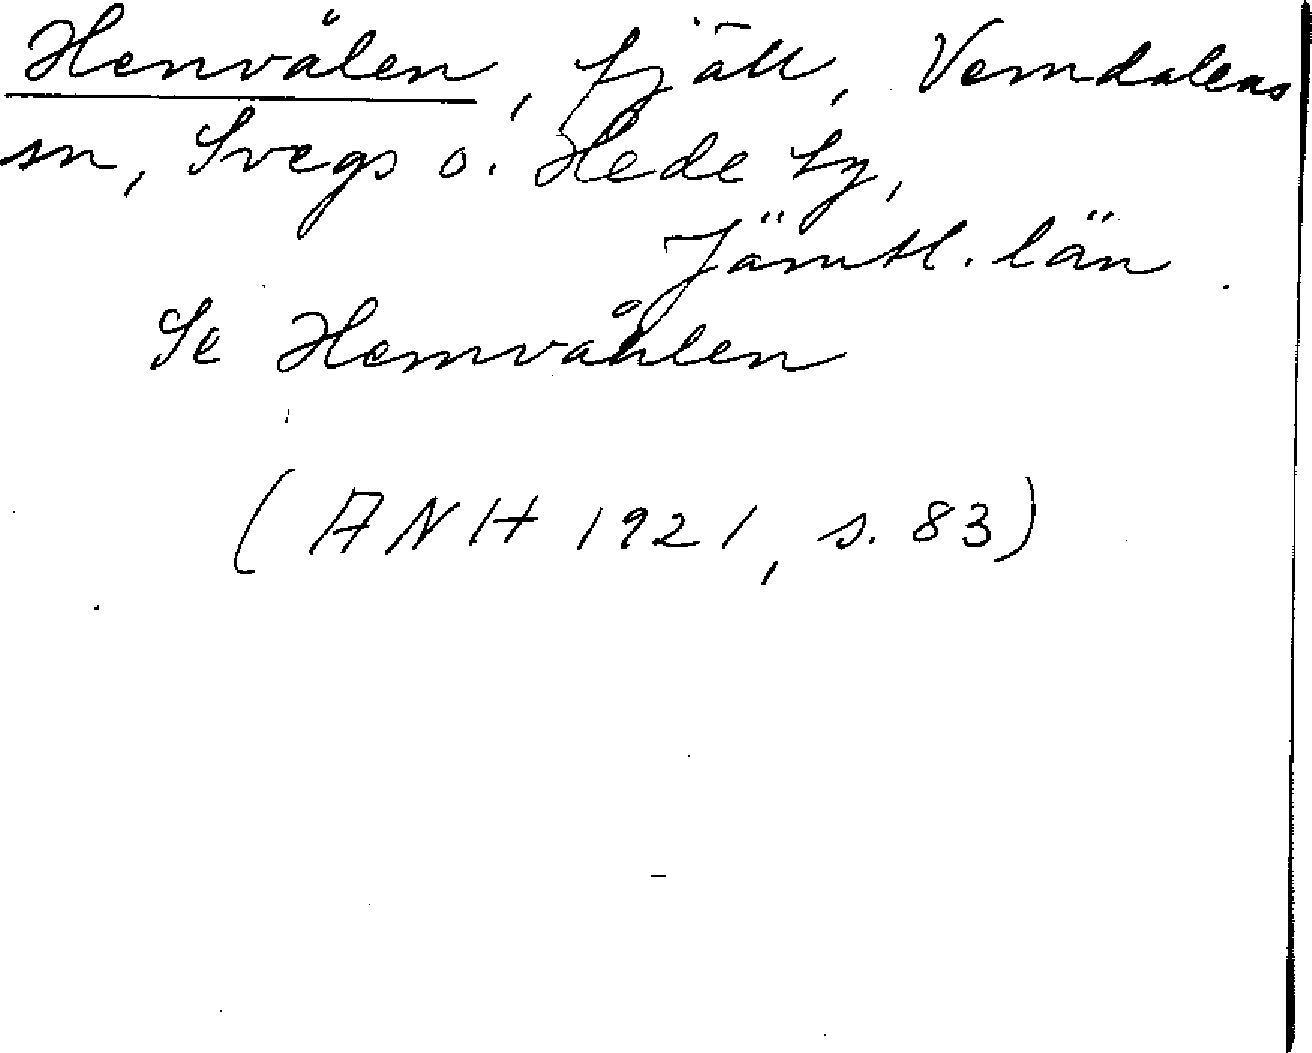 Henvålen, fjäll, Vemdalens
sn, Svegs o. Hede tg,
Jämtl. län
Se Hemvåhlen
(ANH 1921, s. 83)